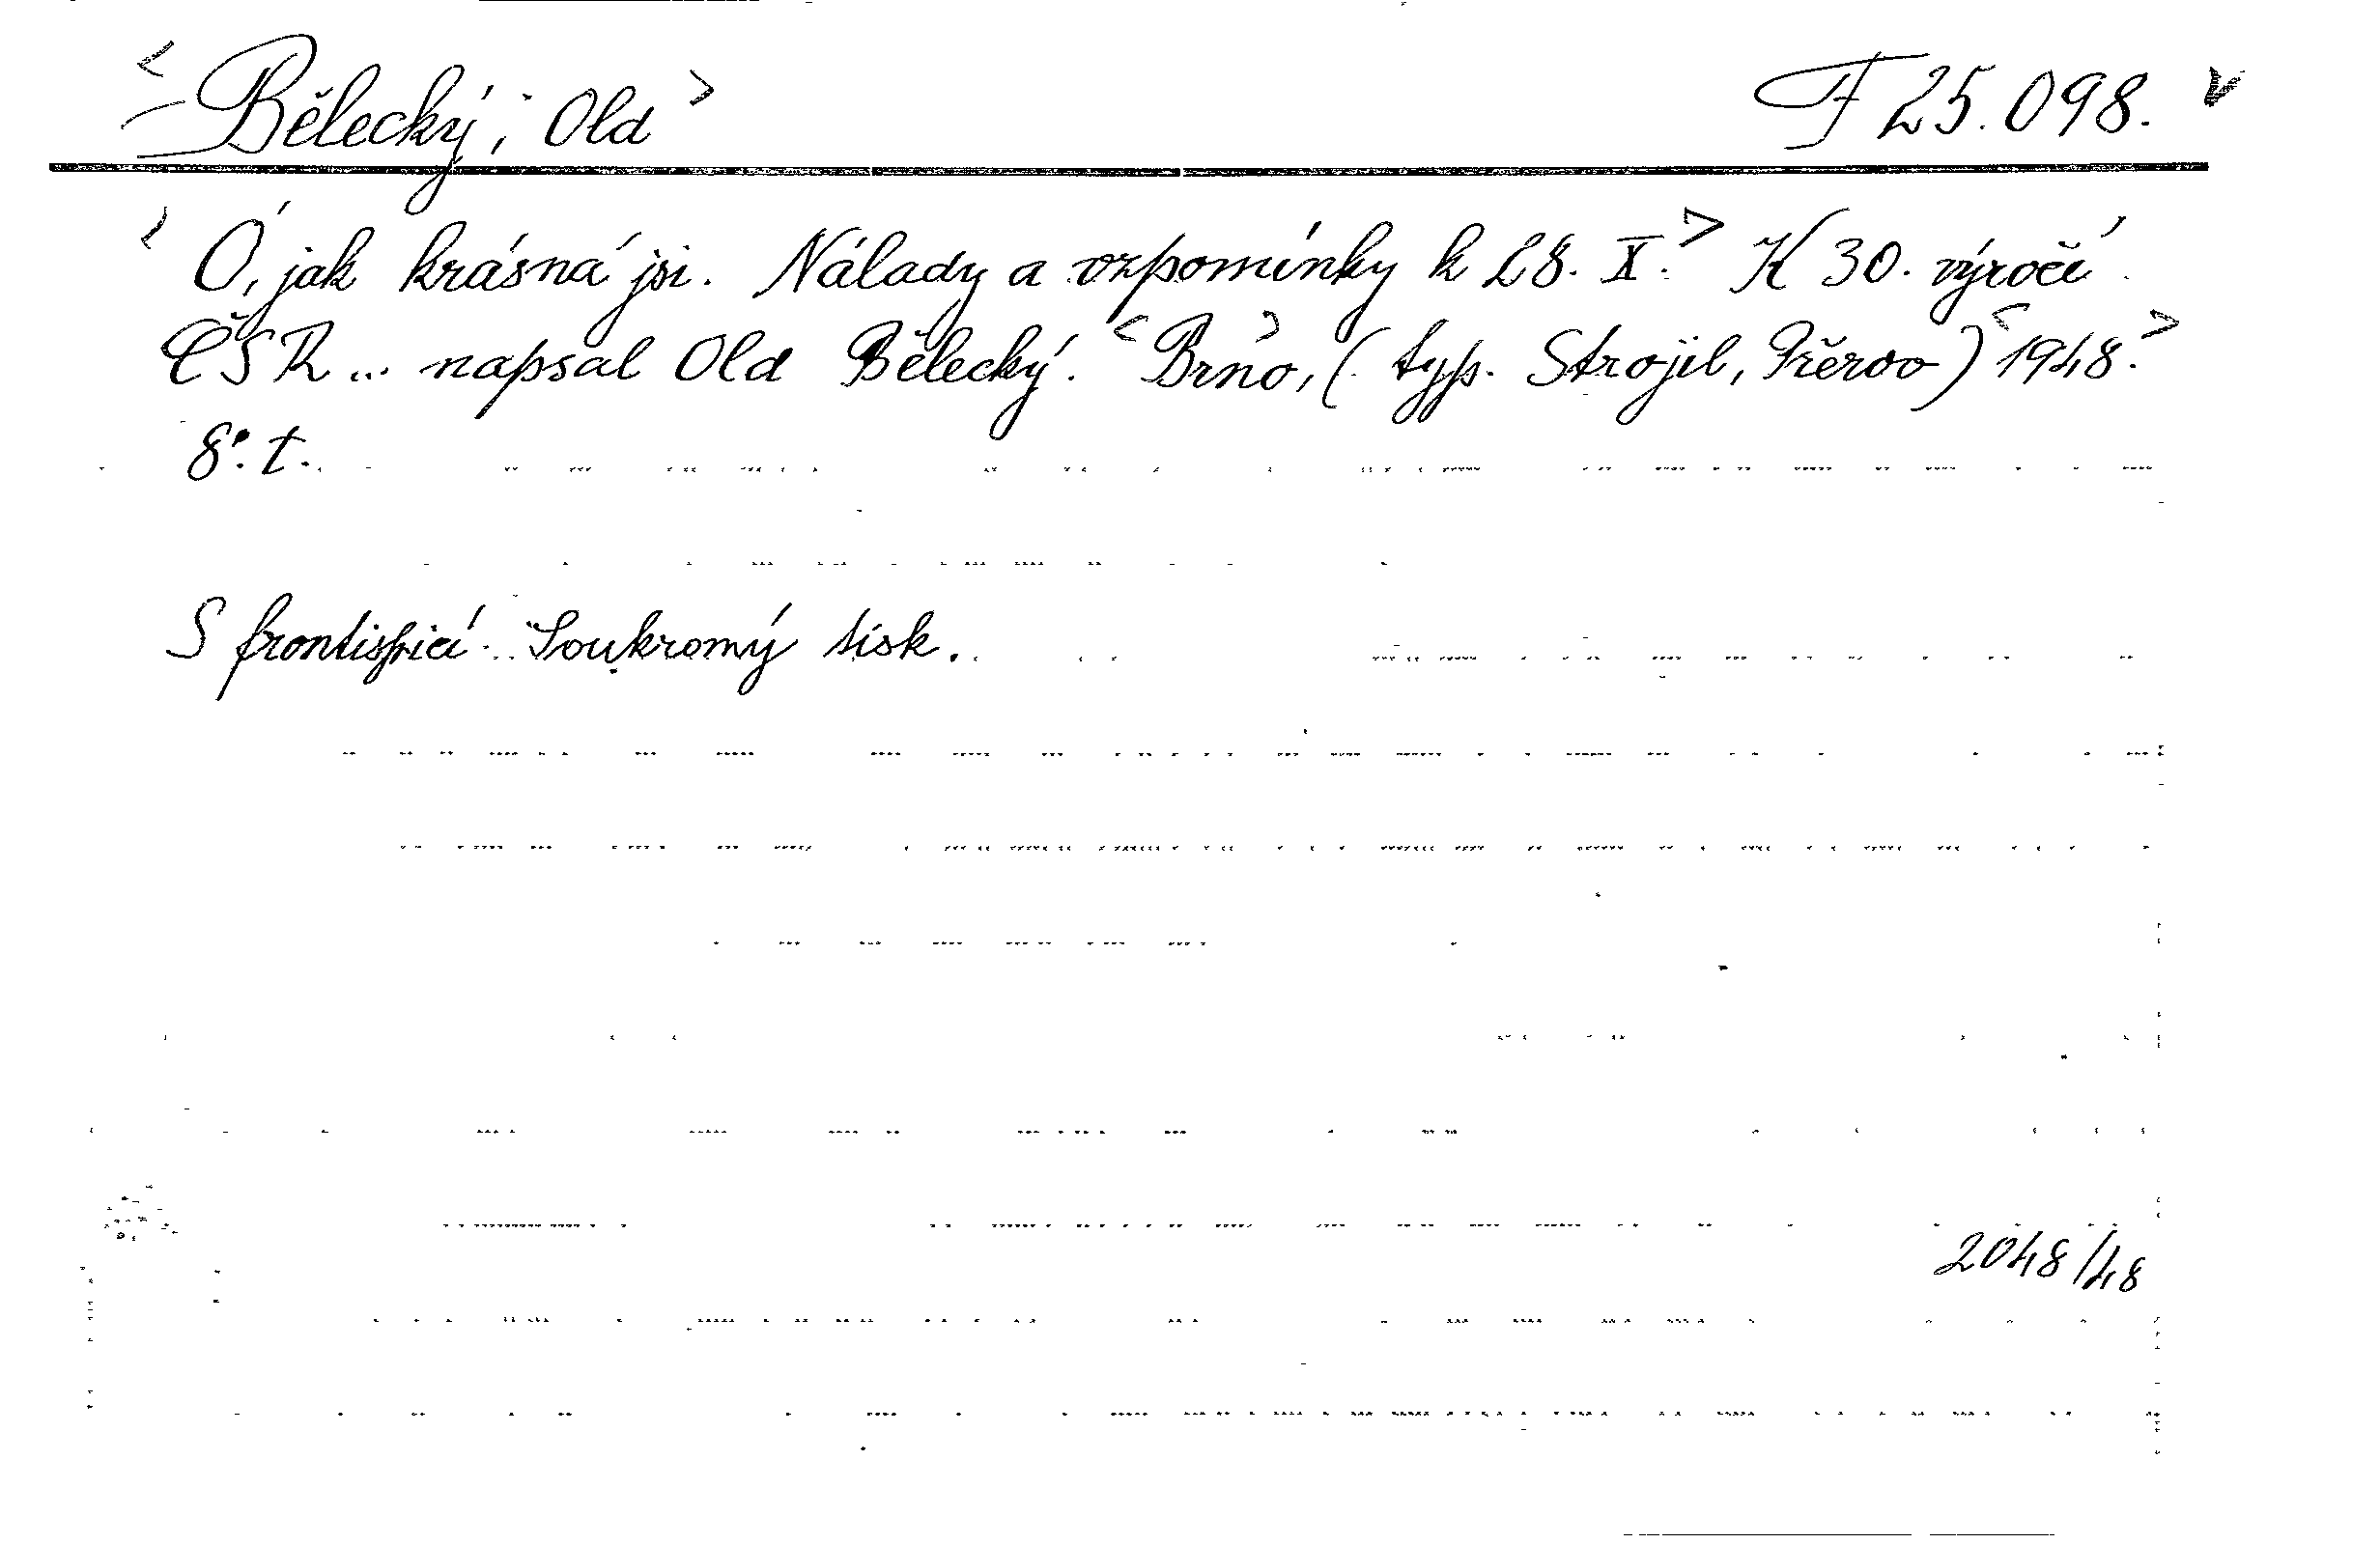 <Bělecký, Old> F 25.098. v
<Ó, jak krásná jsi. Nálady a vzpomínky k 28. X.> K 30. výročí
ČSR... napsal Old Bělecký. <Brno>, (typ. Strojil, Přerov) <1948.>
8°. t.
S frontispicí. Soukromý tisk.
2048/48